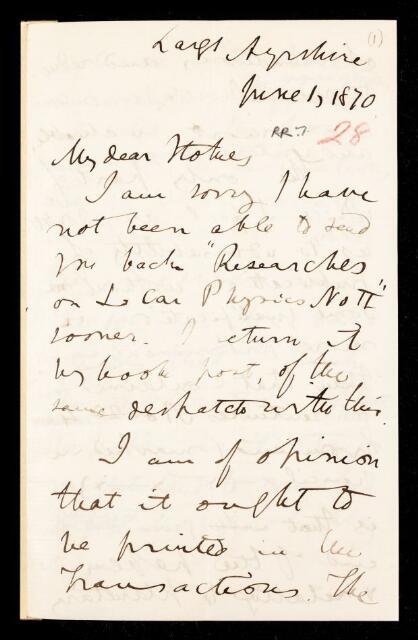 (1)
Largs Ayrshire
June 1, 1870
RR.7. 28
My dear Stokes
I am sorry I have
not been able to send
you back "Researches
on Solar Physics No II"
sooner. I return it
by book post, of the
same despatch with this.
I am of opinion
that it ought to
be printed in the
Transactions. The